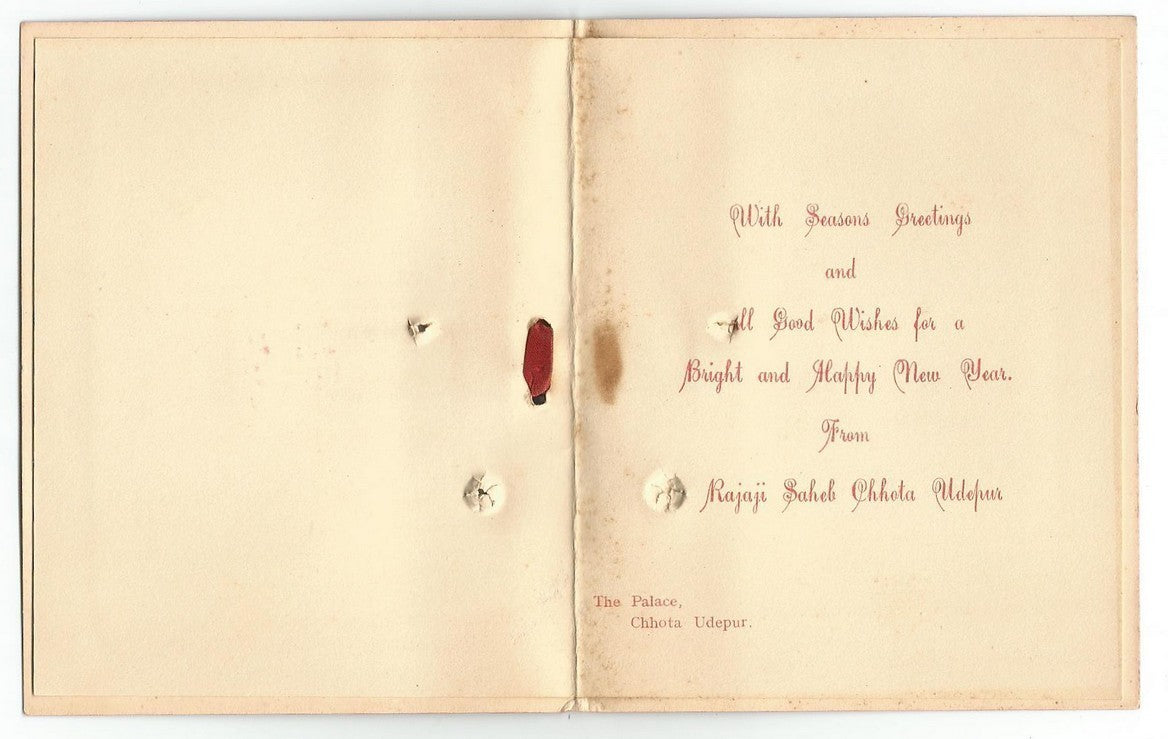 With Seasons Greetings
and
All Good Wishes for a
Bright and Happy New Year.
From
Rajaji Saheb Chhota Udepur
The Palace,
Chhota Udepur.